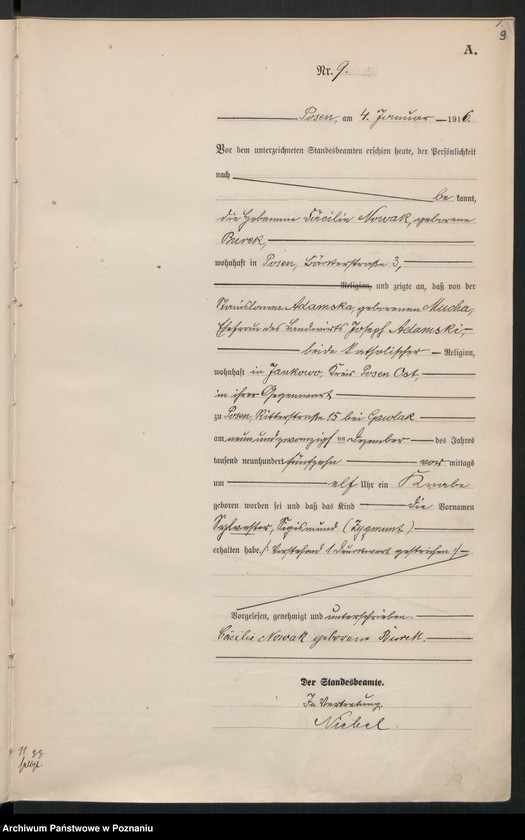 9
A.
Nr. 9.
Posen, am 4. Januar 1916.
Vor dem unterzeichneten Standesbeamten erschien heute, der Persönlichkeit
nach
be kannt,
die Hebamme Cäcilie Nowak, geborene
Burek,
wohnhaft in Posen, Bäckerstraße 3,
Religion, und zeigte an, daß von der
Stanislawa Adamska, geborenen Mucha,
Ehefrau des Landwirts Joseph Adamski,
beide katholischer Religion,
wohnhaft in Jankowo, Kreis Posen Ost,
in ihrer Gegenwart
zu Posen, Ritterstraße 15 bei Gawlak
am neunundzwanzigsten Dezember des Jahres
tausend neunhundert fünfzehn vor mittags
um elf Uhr ein Knabe
geboren worden sei und daß das Kind die Vornamen
Sylvester, Sigismund (Zygmunt)
erhalten habe. /: Vorstehend 1 Druckwort gestrichen :/
Vorgelesen, genehmigt und unterschrieben
Cäcilie Nowak geborene Burek.
Der Standesbeamte.
In Vertretung.
Niebel
Archiwum Państwowe w Poznaniu